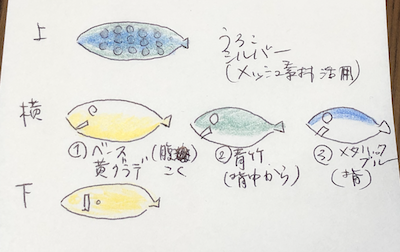 上
うろこ
シルバー
(メッシュ素材 活用)
横
①ベース
黄グラデ
(腹
こく)
②青竹
(背中から)
③メタリック
ブルー
(背)
下